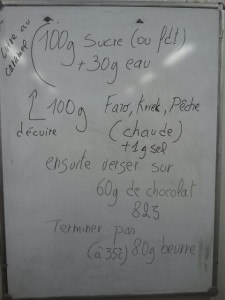 Cuire au
caramel
100g sucre (ou pdt)
+30g eau
100g Faro, Kriek, Pêche
décuire (chaude)
+1g sel
ensuite verser sur
60g de chocolat
823
Terminer par
(à 35°c) 80g beurre